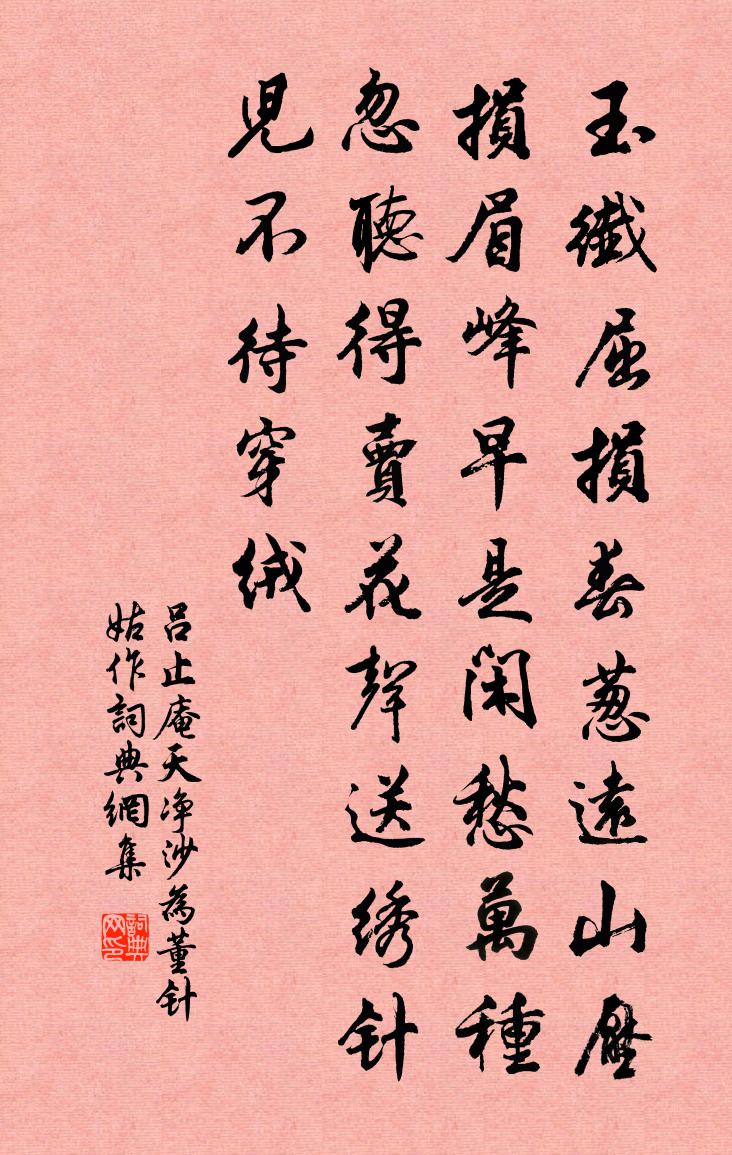 玉纖屈損春葱遠山壓
損眉峰早是閑愁萬種
忽聽得賣花聲送绣针
児不待穿绒
呂止庵天净沙為董针
姑作詞典網集
詞典网印